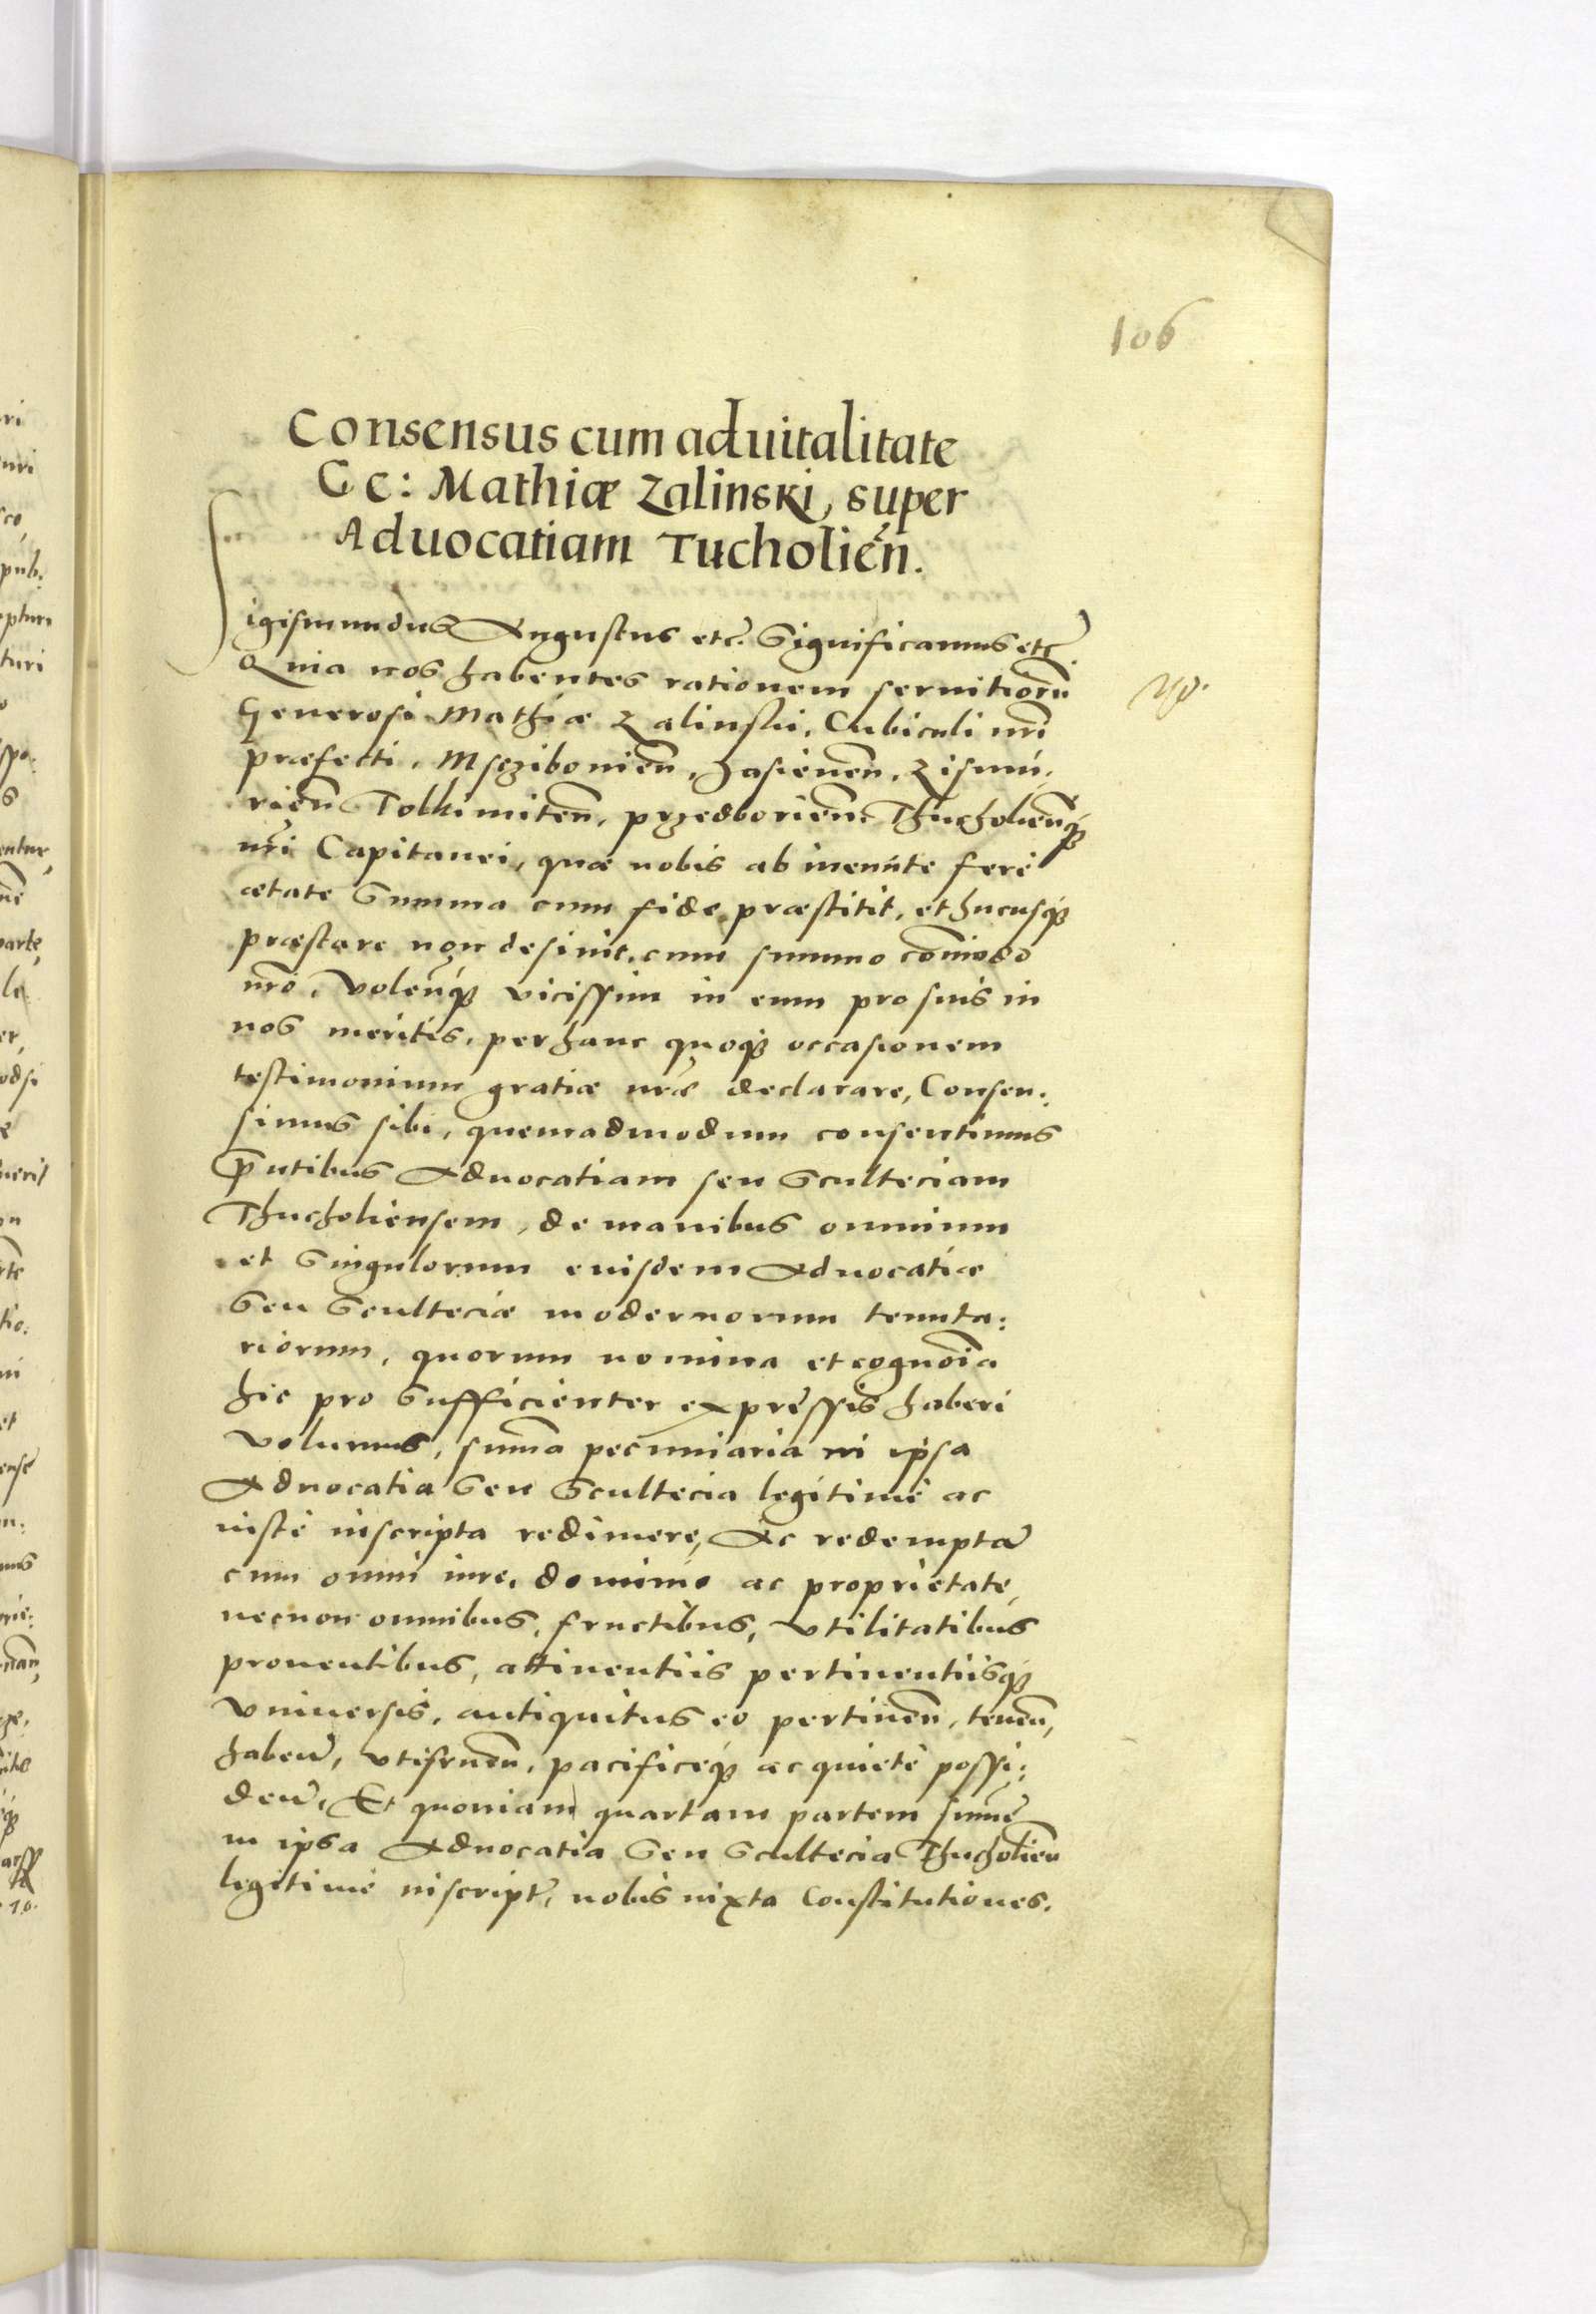 106
Consensus cum aduitalitate
Ge: Mathiæ Zalinski, super
Aduocatiam Tucholieñ.
Sigismundus Augustus etc. Significamus etc.
Quia nos habentes rationem seruitiorũ
Generosi Mathiæ Zalinski, Cubiculi nr̃i
præfecti, Msczibonieñ, Jasieneñ, Zismu-
rieñ Tolkimiteñ, przedborieñ Thucholieñq₃
nr̃i Capitanei, quæ nobis ab ineunte ferè
ætate Summa cum fide præstitit, et hucusq₃
præstare non desinit, cum summo com̃odo
nr̃o, Volen̄q₃ vicissim in eum pro suis in
nos meritis, per hanc quoq₃ occasionem
testimonium gratiæ nr̃æ declarare, Consen:
simus sibi, quemadmodum consentimus
p̃ntibus Aduocatiam seu Sculteciam
Thucholiensem, de manibus omnium
et Singulorum euisdem Aduocatiæ
Seu Sculteciæ modernorum tenuta:
riorum, quorum nomina et cognoĩa
hic pro Sufficienter expressis haberi
volumus, sum̃a pecuniaria in ipsa
Aduocatia Seu Scultecia legitimè ac
iustè inscripta redimere, Ac redemptã
cum omni iure, dominio ac proprietate,
necnon omnibus, fructibus, vtilitatibus
prouentibus, attinentiis pertinentiisq₃
vniuersis, antiquitus eo pertineñ, teneñ,
habeñ, vtifrueñ, pacificeq₃ ac quietè possi:
deñ, Et quoniam quartam partem sum̃æ
in ipsa Aduocatia Seu Scultecia Thucholieñ
legitimè inscriptæ, nobis iuxta Constitutiones.